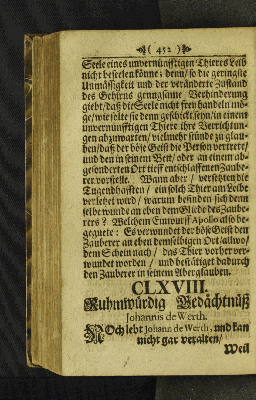 ( 452 )
Seele eines unvernünfftigen Thieres Leib
nicht beseelen könne; denn/ so die geringste
Unmässigkeit und der veränderte Zustand
des Gehirns grungsame Verhinderung
giebt/ daß die Seele nicht frey handeln mö-
ge/ wie solte sie denn geschickt seyn/ in einem
unvernünfftigen Thiere ihre Verrichtun-
gen abzuwarten/ vielmehr stünde zu glau-
ben/ daß der böse Geist die Person vertrett/
und den in seinem Bett/ oder an einem ab-
gesonderten Ort tieff entschlaffenen Zaube-
rer vorstelle. Wann aber / versetzten die
Tugendhafften / ein solch Thier am Leibe
verletzet wird / warum befinden sich denn
selbe wunde an eben dem Gliede des Zaube-
rers? Welchem Einwurff Apollo also be-
gegnete: Es verwundet der böse Geist den
Zauberer an eben demselbigen Ort/ allwo/
dem Schein nach / das Thier vorher ver-
wundet worden / und bestätiget dadurch
den Zauberer in seinem Aberglauben.
CLXVIII.
Ruhmwürdig Gedächtnüß
Johannis de Werth.
NOch lebt Johann de Werth, und kan
nicht gar veralten/
Weil